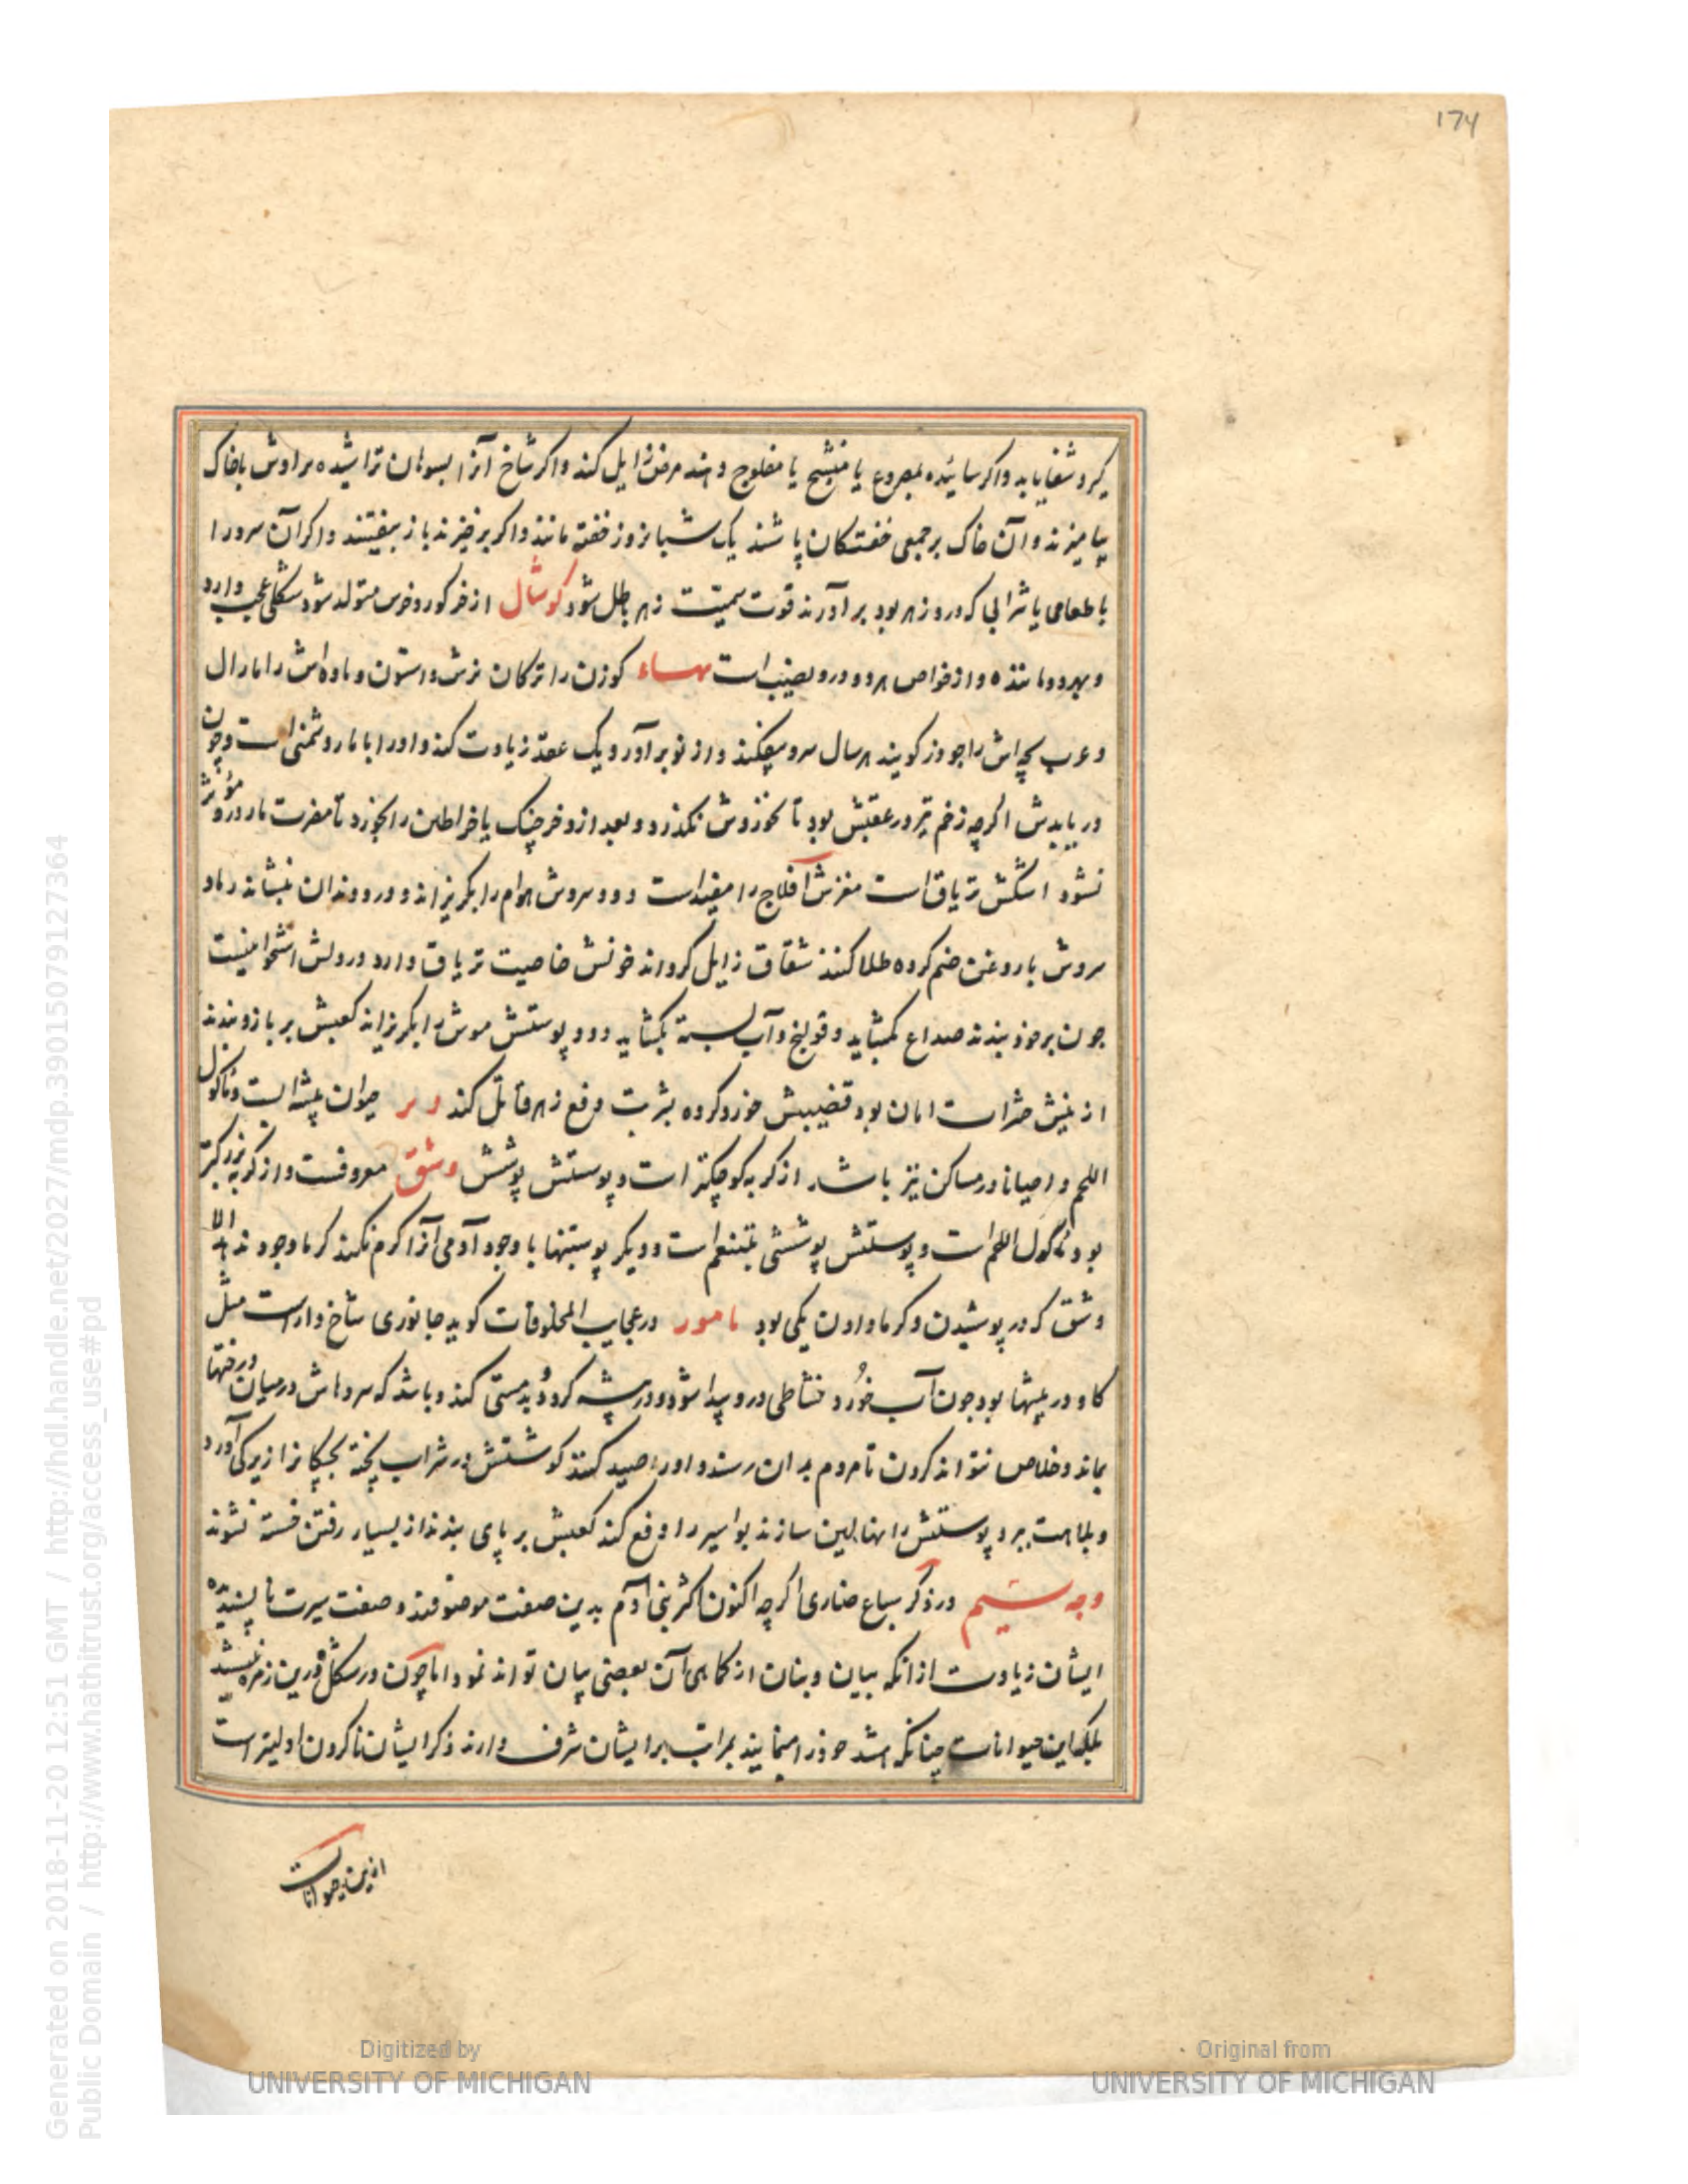 174
کیرد شفا یابد و اکر سائیده بمصروع یا متشنج یا مفلوج دهند مرض زایل کند و اکر شاخ آنرا بسوهان تراشیده براوش باخاک
بیامیزند و آن خاک بر جمعی خفتکان پاشند یک شبانروز خفته مانند و اکر برخیزند باز بیفتند و اکر آن سرو را
با طعامی یا شرابی که درو زهر بود برآورند قوت سمیت زهر باطل شود کوشال از خر کور و خرس متولد شود شکلی عجب دارد
و بهر دو ماننده و از خواص هر دو درو نصیب است مهساء کوزن را ترکان نرش و استون و ماده‌اش را امارال
و عرب بچه‌اش را جوذر کویند هر سال سرو بیفکند و از نو برآورد و یک عقد زیادت کند و او را با مار دشمنی است و چون
دریابدش اکرچه زخم تیر در عقبش بود تا نخوردش نکذرد و بعد ازو خرچنک یا خراطین را بخورد تا مضرت مار درو مؤثر
نشود اشکش تریاق است مغزش افلاج را مفید است و دود سروش هوام را بکریزاند و درد دندان بنشاند رماد
سروش با روغن ضم کرده طلا کنند شقاق زایل کرداند خونش خاصیت تریاق دارد در دلش استخوانیست
چون بر خود بندند صداع بکشاید و قولنج و آب بسته بکشاید و دود پوستش موش را بکریزاند کعبش بر بازو بندند
از نیش حشرات امان بود قضیبش خورد کرده بشربت دفع زهر قاتل کند حیوان بیشه ایست و ماکول
اللحم و احیانا در مساکن نیز باشد از کربه کوچکتر است و پوستش پوشش وشق معروفست و از کربه بزرکتر
بود ماکول اللحم است و پوستش پوششی بتنعم است و دیکر پوستینها با وجود آدمی آنرا کرم نکند کرما وجود ندهد الا
وشق که در پوشیدن و کرما دادن یکی بود یامور در عجایب المخلوقات کوید جانوری شاخ دار است مثل
کاو و در بیشها بود چون آب خورد نشاطی درو پیدا شود و در بیشه کردد و بدمستی کند و باشد که سروهاش در میان درختها
بماند و خلاص نتواند کردن تا مردم بدان رسند و او را صید کنند کوشتش در شراب پخته بچکانرا زیرکی آورد
و بلاهت ببرد پوستش را نهالین سازند بواسیر را دفع کند کعبش بر پای بندند از بسیار رفتن خسته نشوند
وجه سیم در ذکر سباع ضاری اکرچه اکنون اکثر بنی آدم بدین صفت موصوفند و صفت سیرت ناپسندیده
ایشان زیادت از انکه ببیان و بنان از کماهی آن بعضی بیان تواند نمود اما چون در شکل درین زمره نیستند
بلکه این حیوانات چنانکه باشد خود را مینمایند بمراتب بر ایشان شرف دارند ذکر ایشان ناکردن اولیتر است
ازین حیوانات
Digitized by
UNIVERSITY OF MICHIGAN
Original from
UNIVERSITY OF MICHIGAN
Generated on 2018-11-20 12:51 GMT / http://hdl.handle.net/2027/mdp.39015079127364
Public Domain / http://www.hathitrust.org/access_use#pd